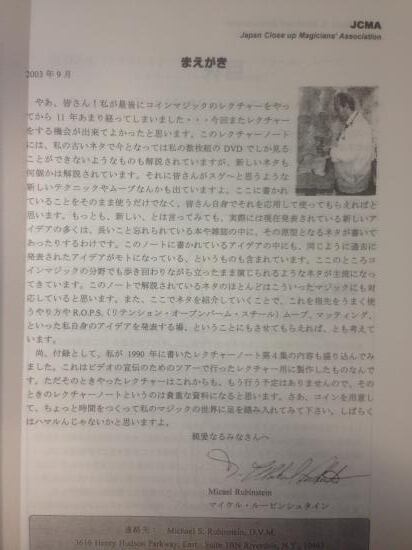 JCMA
Japan Close up Magicians' Association
まえがき
2003年9月
やあ、皆さん!私が最後にコインマジックのレクチャーをやっ
てから11年あまり経ってしまいました・・・今回またレクチャー
をする機会が出来てよかったと思います。このレクチャーノート
には、私の古いネタで今となっては私の数枚組の DVD でしか見る
ことができないようなものも解説されていますが、新しいネタも
何個かは解説されています。それに皆さんがスゲ～と思うような
新しいテクニックやムーブなんかも出ていますよ。ここに書かれ
ていることをそのまま使うだけでなく、皆さん自身でそれを応用して使ってもらえればと
思います。もっとも、新しい、とは言ってみても、実際には現在発表されている新しいア
イデアの多くは、長いこと忘れられている本や雑誌の中に、その原型となるネタが書いて
あったりするわけです。このノートに書かれているアイデアの中にも、同じように過去に
発表されたアイデアがモトになっている、というものも含まれています。ここのところコ
インマジックの分野でも歩き回わりながら立ったまま演じられるようなネタが主流になっ
てきています。このノートで解説されているネタのほとんどはこういったマジックにも対
応していると思います。また、ここでネタを紹介していくことで、これを指先をうまく使
うやり方や R.O.P.S.(リテンション・オープンパーム・スチール)ムーブ、マッティング、
といった私自身のアイデアを発表する場、ということにもさせてもらえれば、とも考えて
います。
尚、付録として、私が 1990 年に書いたレクチャーノート第4集の内容も盛り込んでみ
ました。これはビデオの宣伝のためのツアーで行ったレクチャー用に製作したものなんで
す。ただそのときやったレクチャーはこれからも、もう行う予定はありませんので、その
ときのレクチャーノートというのは貴重な資料になると思います。さあ、コインを用意し
て、ちょっと時間をつくって私のマジックの世界に足を踏み入れてみて下さい。しばらく
はハマルんじゃないかと思いますよ。
親愛なるみなさんへ
Micael Rubinstein
マイケル・ルービンシュタイン
連絡先: Michael S. Rubinstein, D.V.M.
3616 Henry Hudson Parkway, East, Suite Riverdale, N.Y.,